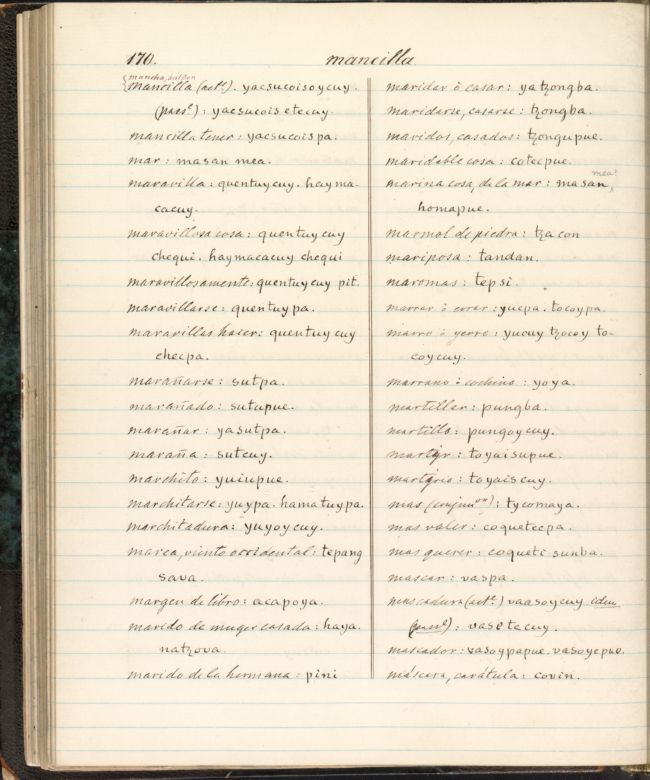 170.
mancilla
mancha, baldon
mancilla (act.e). yacsucoisoycuy.
(pas.e): yacsucois etecuy.
mancilla tener: yacsucoispa.
mar: masan mea.
maravilla: quentuycuy. hayma-
cacuy.
maravillosa cosa: quentuycuy
chequi. haymacacuy chequi
maravillosamente: quentuycuy pit.
maravillarse: quentuypa.
maravillas hacer: quentuycuy
checpa.
marañarse: sutpa.
marañado: sutupue.
marañar: yasutpa.
maraña: sutcuy.
marchito: yuiupue.
marchitarse: yuypa. hamatuypa.
marchitadura: yuyoycuy.
marea, viento occidental: tepang
sava.
margen de libro: acapoya.
marido de muger casada: haya.
natzova.
marido de la hermana: pini
maridar ò casar: yatzongba.
maridarse, casarse: tzongba.
maridos, casados: tzongupue.
maridable cosa: cotecpue.
mea!
marina cosa, de la mar: masan,
homapue.
marmol de piedra: tza con
mariposa: tandan.
maromas: tepsi.
marrar ò errar: yucpa. tocoypa.
marro ò yerro: yucuy tzocoy to-
coycuy.
marrano ò cochino: yoya.
martillar: pungba.
martillo: pungoycuy.
martyr: toyaisupue.
martyrio: toyaiscuy.
mas (conjun.on): tycomaya.
mas valer: coquetecpa.
mas querer: coqueti sunba.
mascar: vaspa.
mascadura (act.e) vaasoycuy idem
(pas.e): vasetecuy.
mascador: vasoypapue. vasoyepue.
máscara, carátula: covin.